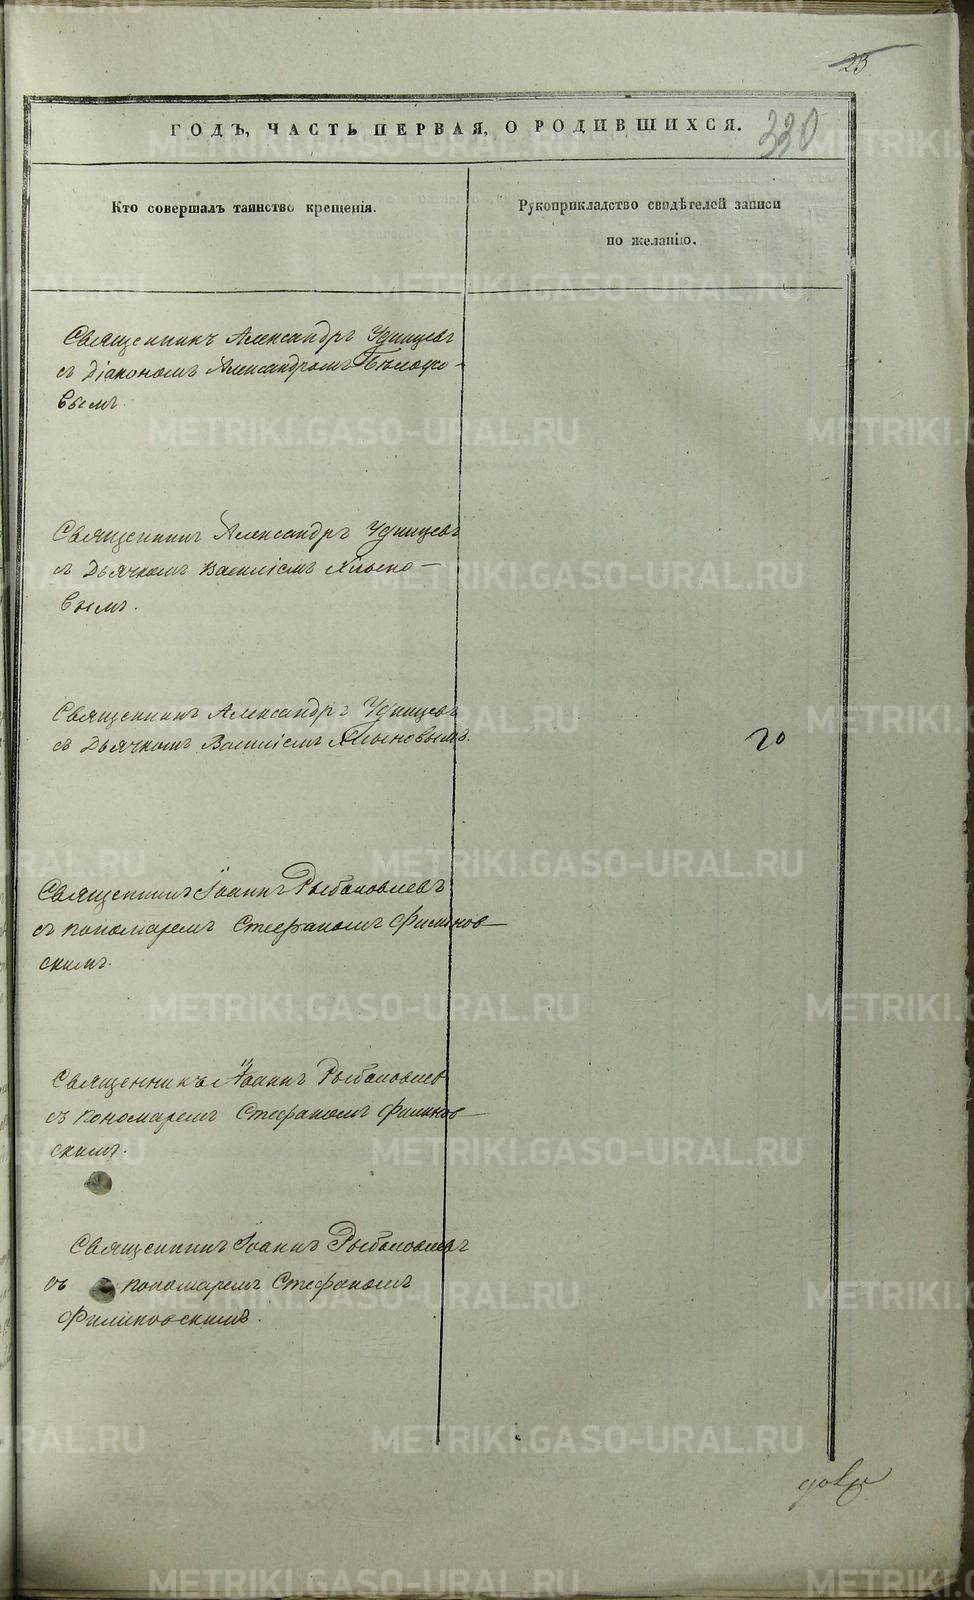 23
ГОДЪ, ЧАСТЬ ПЕРВАЯ, О РОДИВШИХСЯ.
330
Кто совершалъ таинство крещенія.
Рукоприкладство свидѣтелей записи
по желанію.
Священникъ Александръ Удинцевъ
съ Діакономъ Александромъ
вымъ.
Священникъ Александръ Удинцевъ
съ Дьячкомъ Василіемъ
вымъ.
Священникъ Александръ Удинцевъ
съ Дьячкомъ Василіемъ
20
Священникъ Іоаннъ Рыболовлевъ
съ пономаремъ Стефаномъ Филинов-
скимъ.
Священникъ Іоаннъ Рыболовлев
съ пономаремъ Стефаномъ Филинов-
скимъ.
Священникъ Іоаннъ Рыболовлевъ
съ пономаремъ Стефаномъ
Филиновскимъ.
METRIKI.GASO-URAL.RU